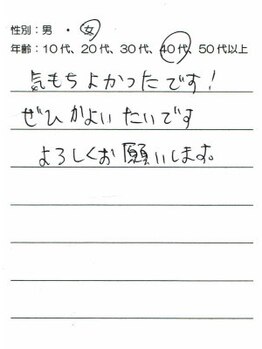 性別：男 ・ 女
年齢：10代、20代、30代、40代、50代以上
気もちよかったです！
ぜひかよいたいです
よろしくお願いします。